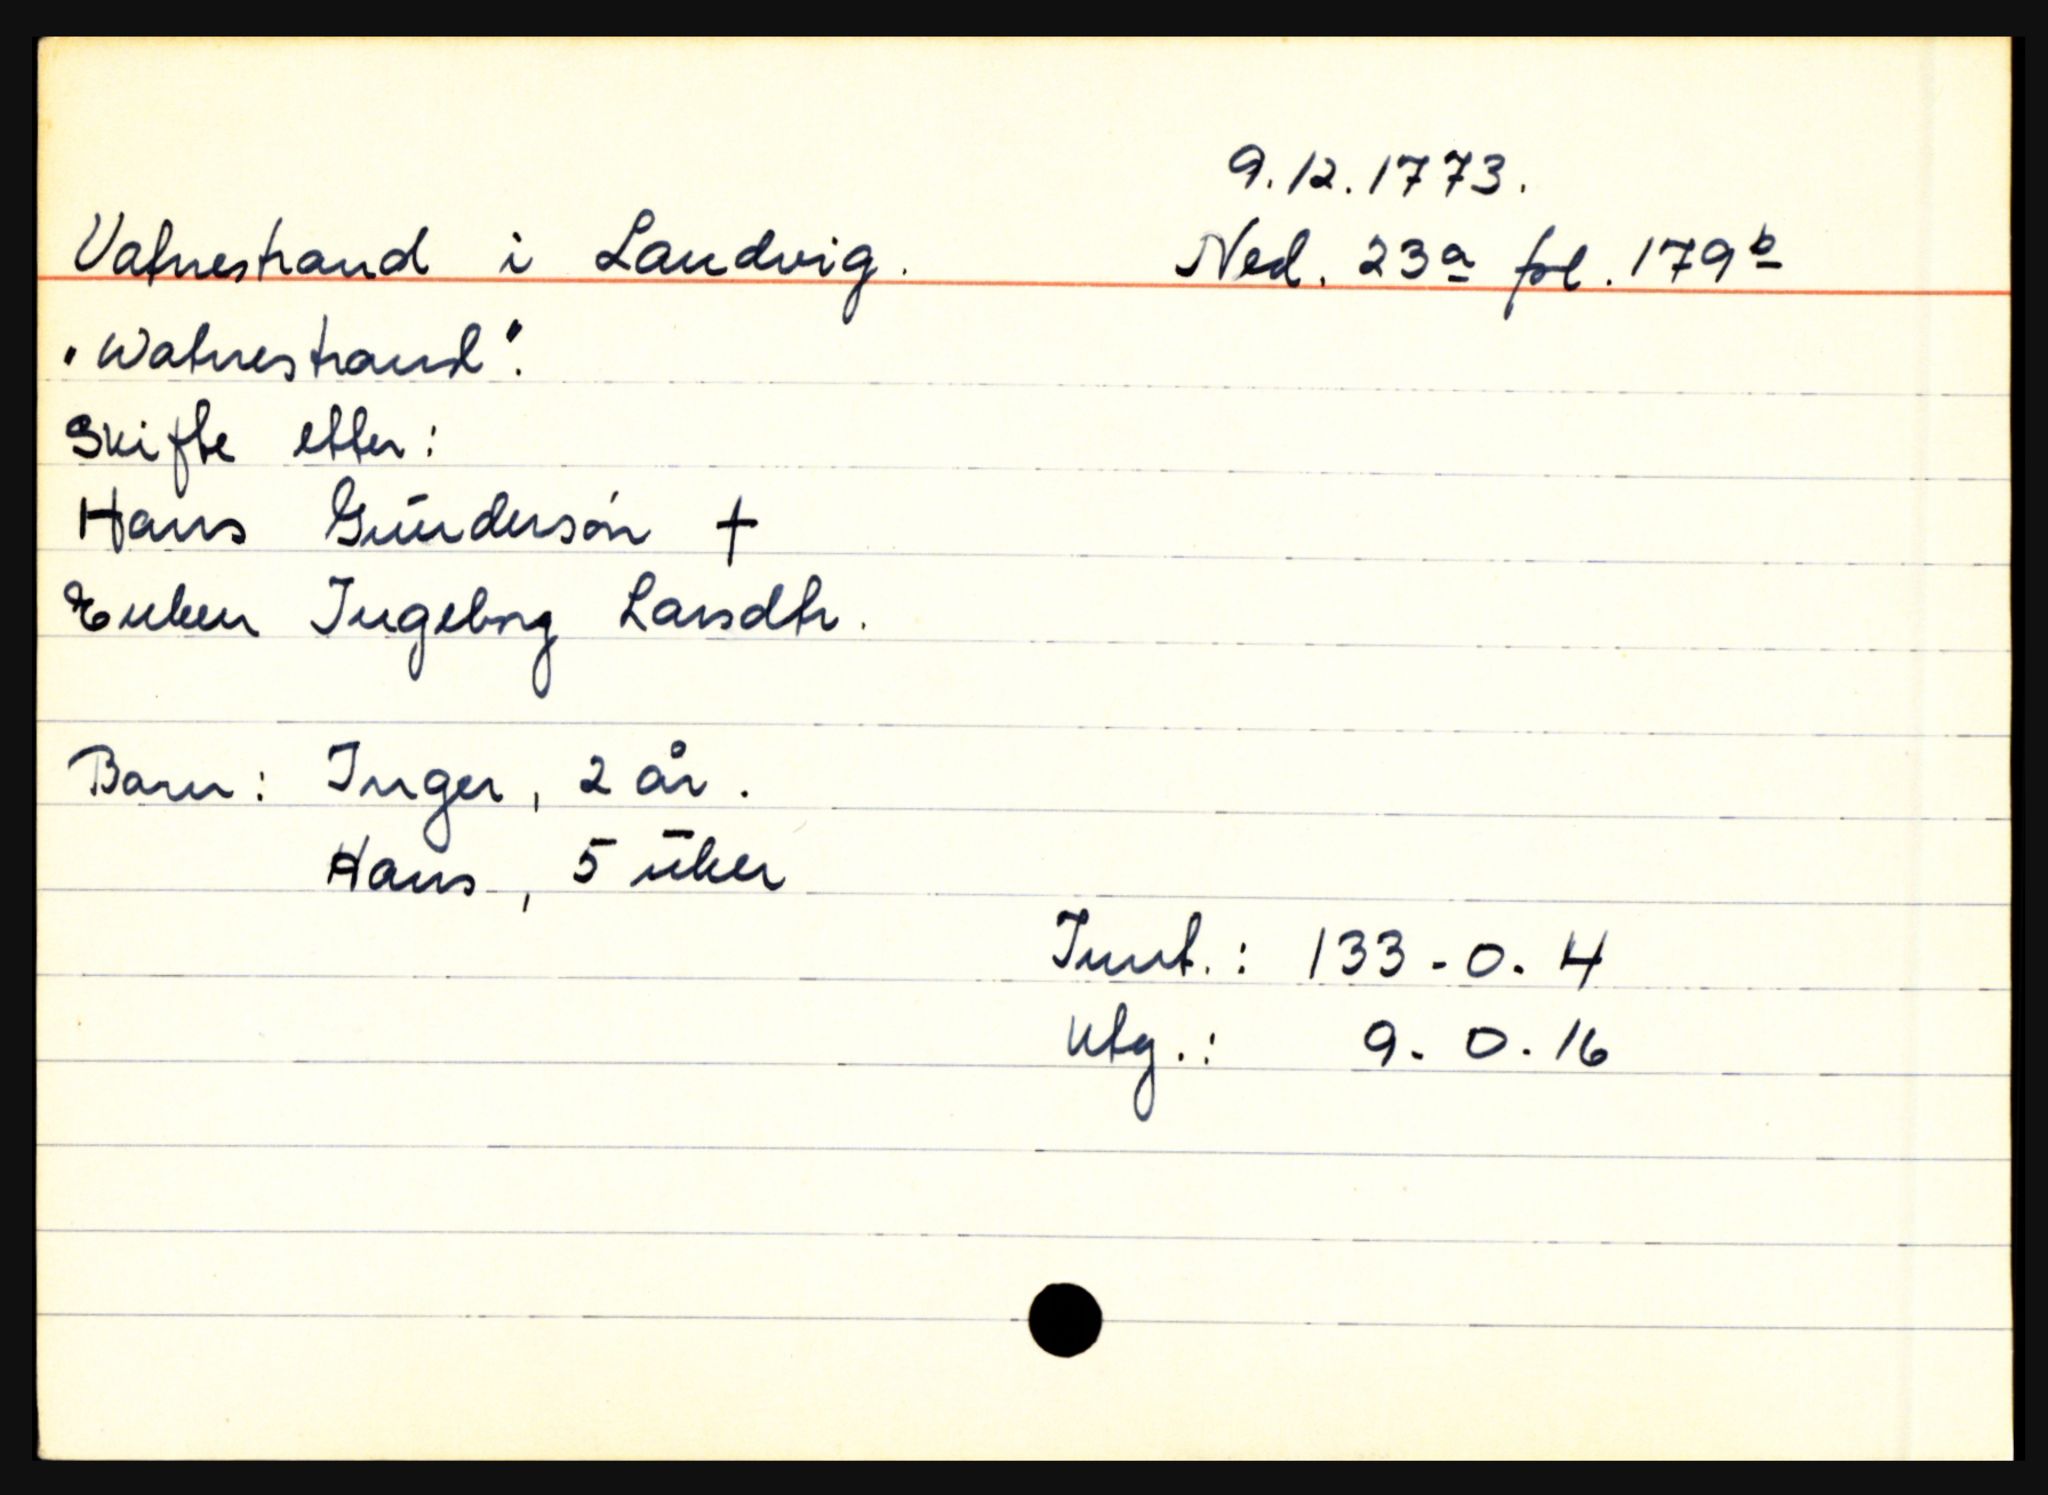 9.12.1773.
Vatnestrand i Landvig. Ned. 23a fol. 179b
"Watnestrand".
Skifte etter:
Hans Gundersøn †
Enken Ingeborg Larsdtr.
Barn: Inger, 2 år.
Hans, 5 uker
Innt.: 133-0-4
Utg.: 9-0-16